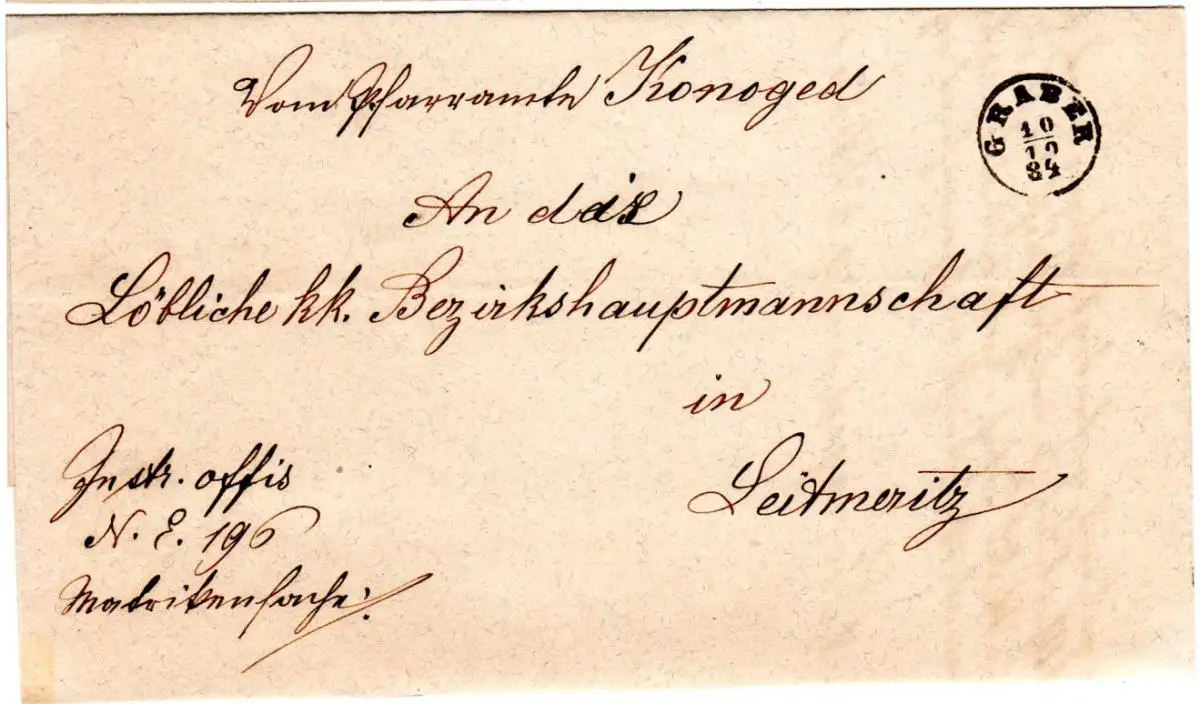 Vom Pfarramte Konoged
GRABER
10
10
84
An das
Löbliche kk. Bezirkshauptmannschaft
in
Leitmeritz
Instr. offis
N. E. 196
Matrikensache